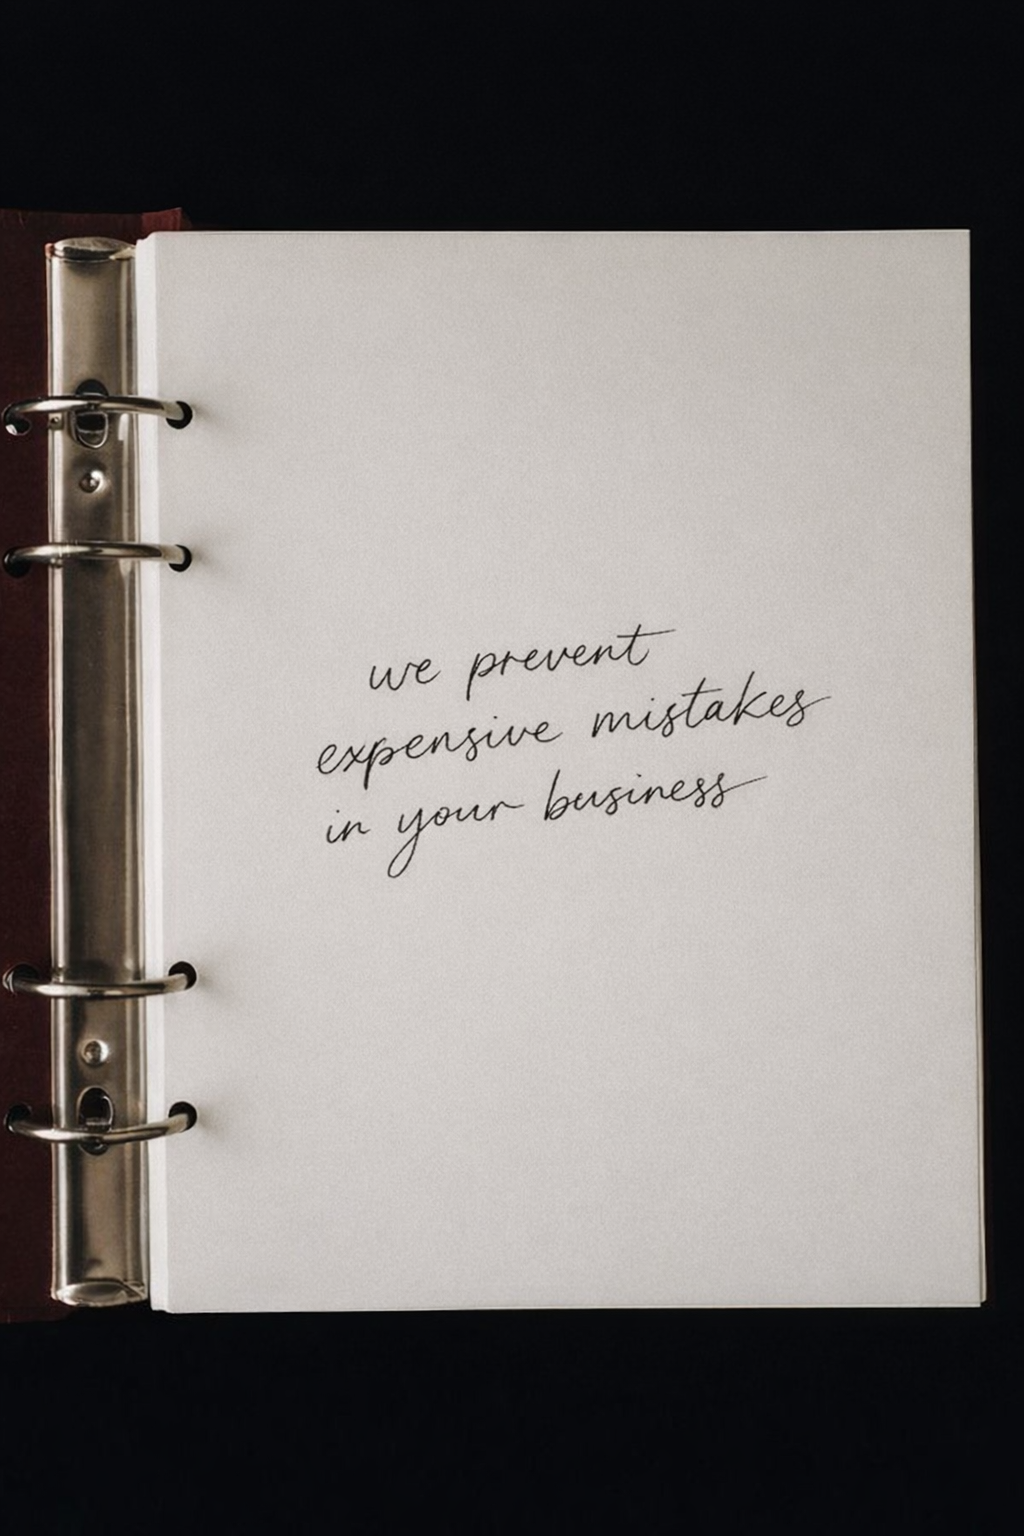 we prevent
expensive mistakes
in your business